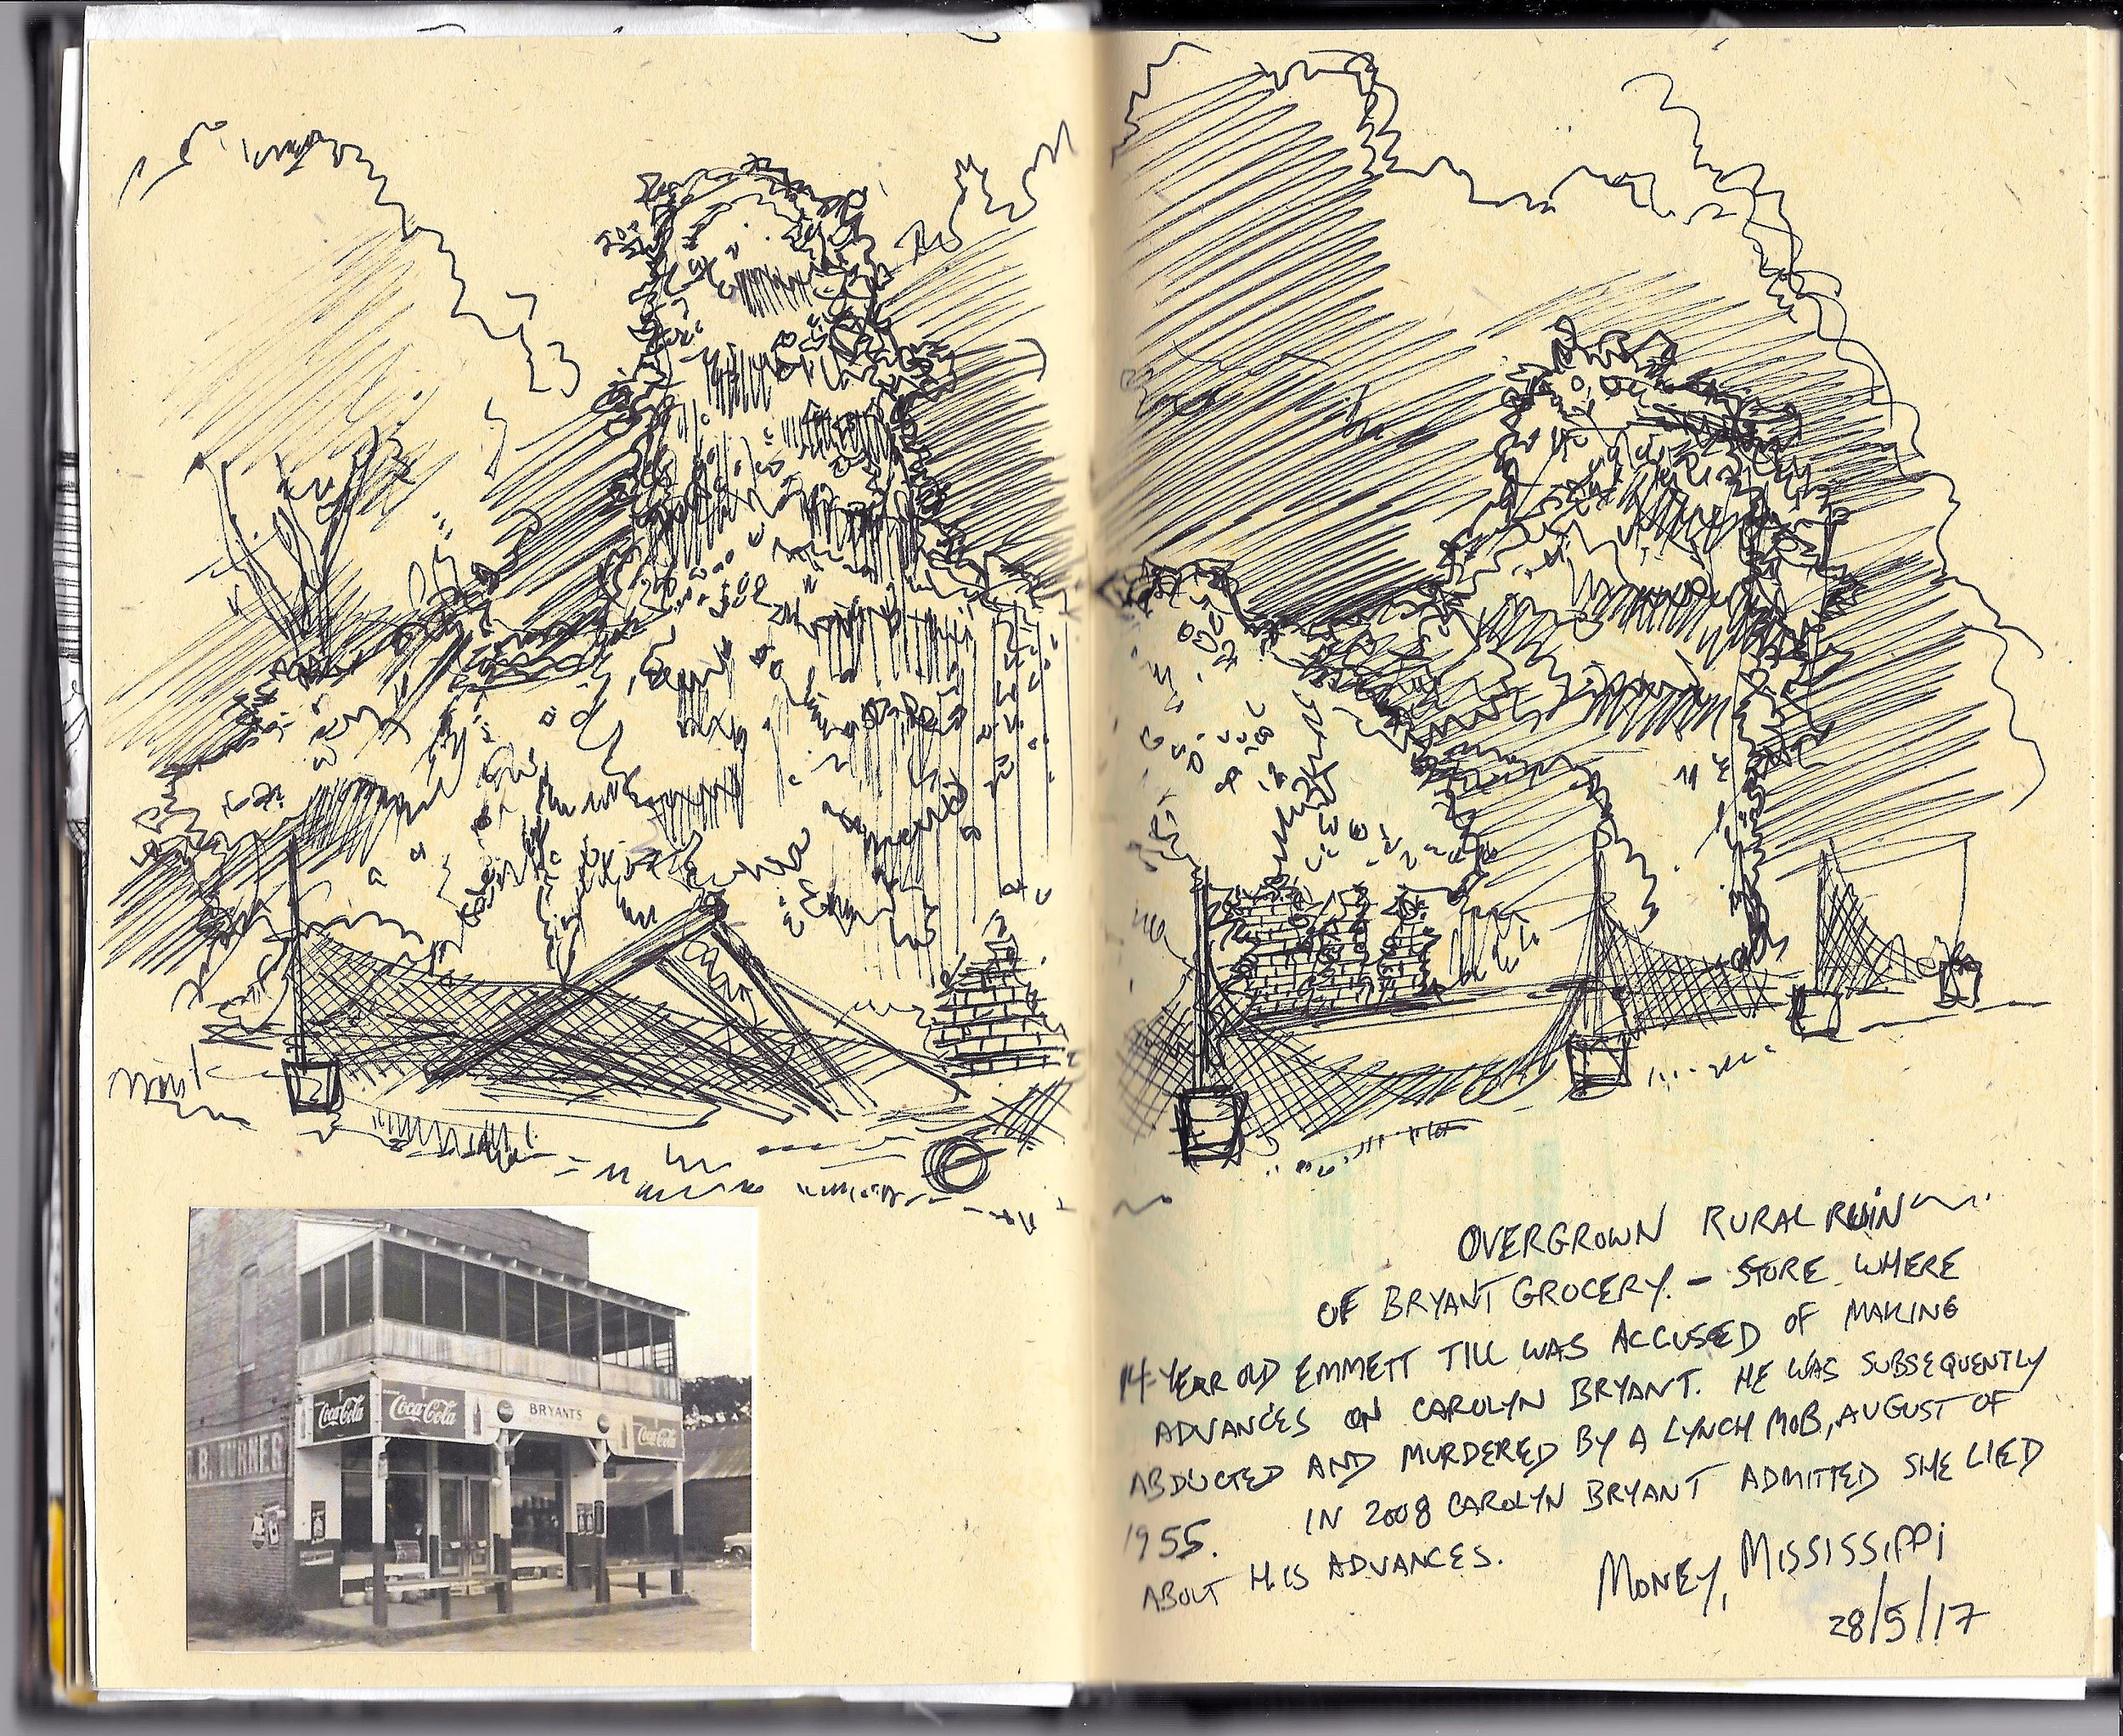 Coca-Cola
Coca-Cola
BRYANTS
Coca-Cola
B. TURNER
OVERGROWN RURAL RUIN
OF BRYANT GROCERY. – STORE WHERE
14-YEAR OLD EMMETT TILL WAS ACCUSED OF MAKING
ADVANCES ON CAROLYN BRYANT. HE WAS SUBSEQUENTLY
ABDUCTED AND MURDERED BY A LYNCH MOB, AUGUST OF
1955. IN 2008 CAROLYN BRYANT ADMITTED SHE LIED
ABOUT HIS ADVANCES.
MONEY, MISSISSIPPI
28/5/17